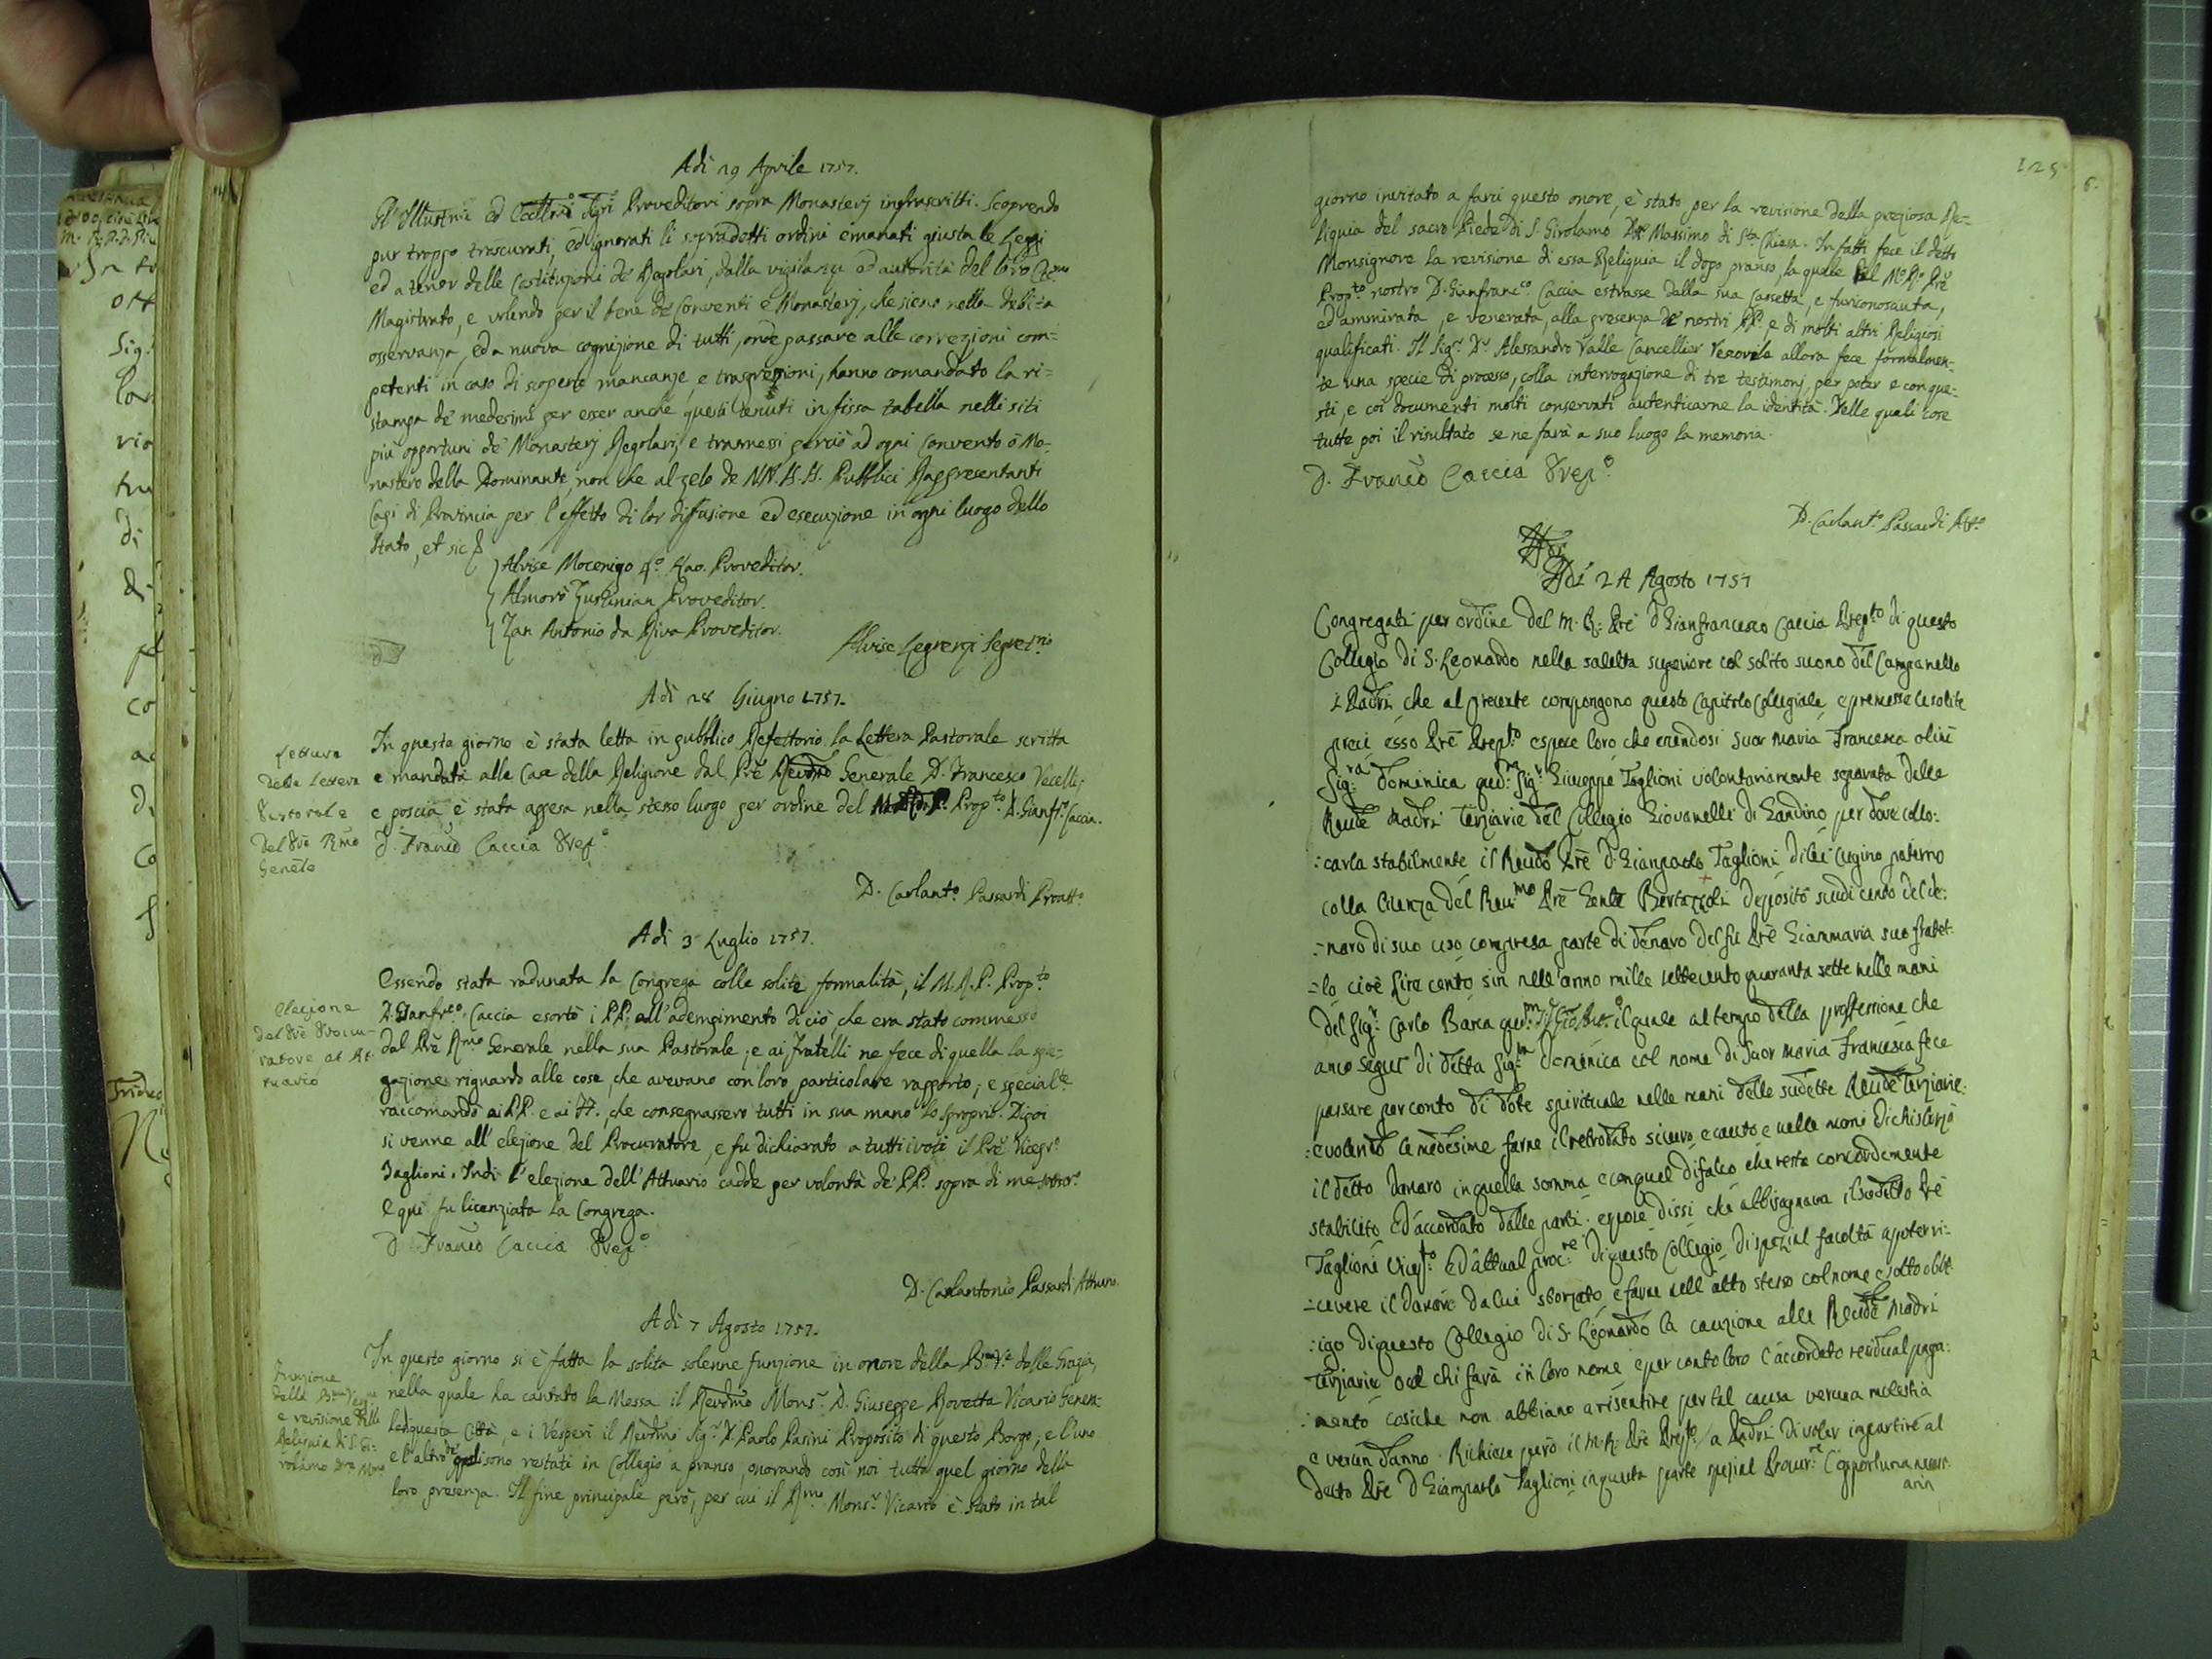 Adì 29 Aprile 1757.
Gl'Illustrmi ed Eccellmi Sigri Proveditori sopra Monasterj infrascritti. Scoprendo
pur troppo trascurati, ed ignorati li sopradetti ordini emanati giusta le Leggi
ed a tenor delle Costituzioni de Regolari, dalla vigilanza ed autorità del loro Eccmo
Magistrato, e volendo per il bene de Conventi e Monasterj, che sieno nella debita
osservanza, ed a nuova cognizione di tutti, onde passare alle correzioni com=
petenti in caso di scoperte mancanze, e trasgressioni, hanno comandato la ri=
stampa de medesimi per esser anche questi tenuti in fissa tabella nelli siti
più opportuni de Monasterj Regolari, e trasmessi perciò ad ogni Convento ò Mo-
nastero della Dominante, non che al zelo de NN. H. H. Pubblici Rappresentanti
Capi di Provincia per l'effetto di lor difusione ed esecuzione in ogni luogo dello
Stato, et sic
Alvise Mocenigo 4º Kav. Proveditor.
Almorò Zustinian Proveditor.
Zan Antonio da Riva Proveditor.
Alvise Legrenzi Segretrio
Adì 28 Giugno 1757.
Lettura
della Lettera
Pastorale
del Prē Rmo
Genēle
In questo giorno è stata letta in pubblico Refettorio la Lettera Pastorale scritta
e mandata alle Case della Religione dal Prē Revdmo Generale D. Francesco Vecellj,
e poscia è stata appesa nello stesso luogo per ordine del Propto D. Gianfrco Caccia.
D. Franco Caccia Prepº
D. Carlantº Passardi Proattº
Adì 3 Luglio 1757.
Elecione
del Prē Procu-
ratore ed At-
tuario
Essendo stata radunata la Congrega colle solite formalità, il M. R. P. Propto
D. Gianfrco Caccia esortò i PP. all'adempimento di ciò che era stato commesso
dal Prē Rmo Generale nella sua Pastorale, e ai Fratelli ne fece di quella la spie-
gazione riguardo alle cose, che avevano con loro particolare rapporto, e specialte
raccomandò ai PP. e ai FF., che consegnassero tutti in sua mano lo spropriº. Dipoi
si venne all'elezione del Procuratore, e fu dichiarato a tutti i voti il Prē Vicepº
Taglioni. Indi l'elezione dell'Attuario cadde per volontà de PP. sopra di me sottosº.
E quì fu licenziata la Congrega.
D. Franco Caccia Prepº
D. Carlantonio Passardi Attuaro.
Adì 7 Agosto 1757.
Funzione
della Bma Verg
e revisione della
Reliquia di S. Gi-
rolamo
In questo giorno si è fatta la solita solenne funzione in onore della Bma Ve delle Grazie,
nella quale ha cantato la Messa il Revdmo Monsr D. Giuseppe Rovetta Vicario Genera-
le di questa Città, e i Vesperi il Revdmo Sigr D. Paolo Pasini Proposito di questo Borgo, e l'uno
e l'altro sono restati in Collegio a pranso, onorando così noi tutto quel giorno della
loro presenza. Il fine principale però, per cui il Rmo Monsr Vicario è stato in tal
125
giorno invitato a farci questo onore, è stato per la revisione della preziosa Re-
liquia del sacro Piede di S. Girolamo Dre Massimo di Sta Chiesa. Infatti fece il detto
Monsignore la revisione di essa Reliquia il dopo pranso, la quale il Mº Rº Prē
Propto nostro D. Gianfrancº Caccia estrasse dalla sua Cassetta, e fu riconosciuta,
ed ammirata, e venerata, alla presenza de nostri PP. e di molti altri Religiosi
qualificati. Il Sigr Dr Alessandro Valle Cancellier Vescovile allora fece formalmen-
te una specie di processo, colla interrogazione di tre testimonj, per poter e con que-
sti, e coi documenti molti conservati autenticarne la identità. Delle quali cose
tutte poi il risultato se ne farà a suo luogo la memoria.
D. Franco Caccia Prepº
D. Carlantº Passardi Attº
Adi 24 Agosto 1757
Congregati per ordine del M. R: Prē D Gianfrancesco Caccia Prepto di questo
Collegio di S. Leonardo nella saletta superiore col solito suono del Campanello
i Padri che al presente compongono questo Capitolo Collegiale, e premesse le solite
preci esso Prē Prepto espose loro che essendosi Suor Maria Francesca olim
Sigra Domenica qudm Sigr Giuseppe Taglioni volontariamente separata dalle
Revde Madri Terziarie del Collegio Giovanelli di Gandino per dove collo:
:carla stabilmente il Revdo Prē D. Gianpaolo Taglioni di lei Cugino paterno
colla licenza del Revmo Prē Genle Bertazzoli depositò scudi cento del de:
:naro di suo uso compresa parte di denaro del fu Prē Gianmaria suo fratel:
=lo cioè Lire cento sin nell'anno mille settecento quaranta sette nelle mani
del Sigr Carlo Barca qudm Sigr Gio: Ant: il quale al tempo della proffessione che
anco seguì di detta Sigra Domenica col nome di Suor Maria Francesca fece
passare per conto di dote spirituale nelle mani delle sudette Revde Terziarie:
:e volendo le medesime farne il retrodato sicuro, e cauto e nelle mani di chi sborzò
il detto denaro in quella somma e con quel difalco che resta concordemente
stabilito ed accordato dalle parti. eppose dissi che abbisognava il sudetto Prē
Taglioni Vicepto ed attual procre di questo Collegio di spezial facoltà a poter ri=
=cevere il danaro da lui sborzato e farne nell'atto stesso col nome e sotto obbl:
:igo di questo Collegio di S. Leonardo la cauzione alle Revde Madri
Terziarie o a chi farà in loro nome e per conto loro l'accordato residual paga:
:mento cosiche non abbiano a risentire per tal causa veruna molestia
e verun danno. Richiese però il M. R: Prē Prepto a Padri di voler impartire al
detto Prē D Gianpaolo Taglioni in questa parte spezial Procur: l'opportuna